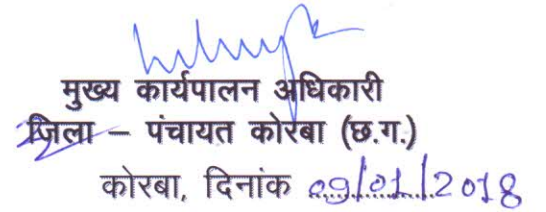 मुख्य कार्यपालन अधिकारी
जिला – पंचायत कोरबा (छ.ग.)
कोरबा, दिनांक 09/01/2018